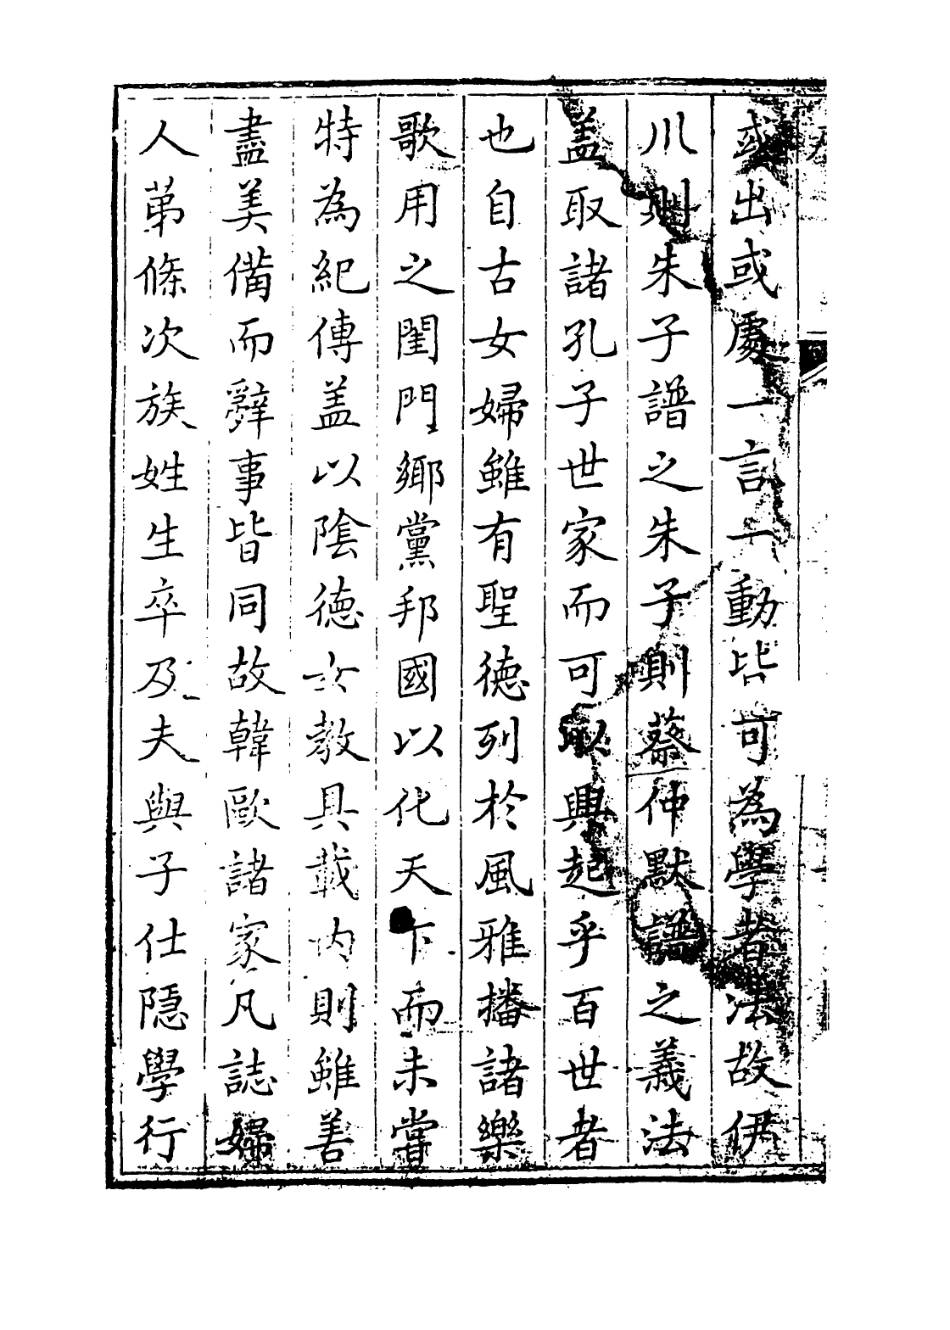 或出或處一言一動皆可為學者法故伊
川則朱子譜之朱子則蔡仲默譜之義法
盖取諸孔子世家而可以興起乎百世者
也自古女婦雖有聖德列於風雅播諸樂
歌用之閨門鄉黨邦國以化天下而未嘗
特為紀傳盖以陰德女教具載內則雖善
盡美備而辭事皆同故韓歐諸家凡誌婦
人苐條次族姓生卒及夫與子仕隱學行